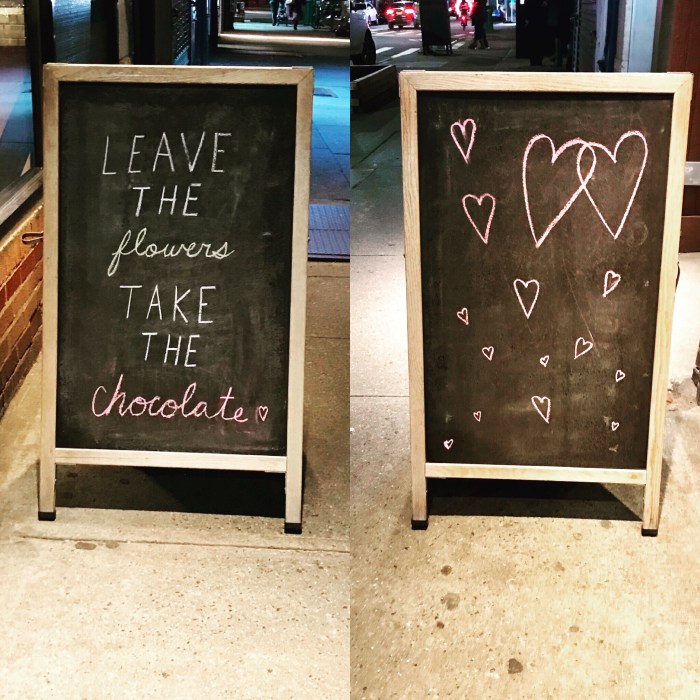 LEAVE
THE
flowers
TAKE
THE
chocolate